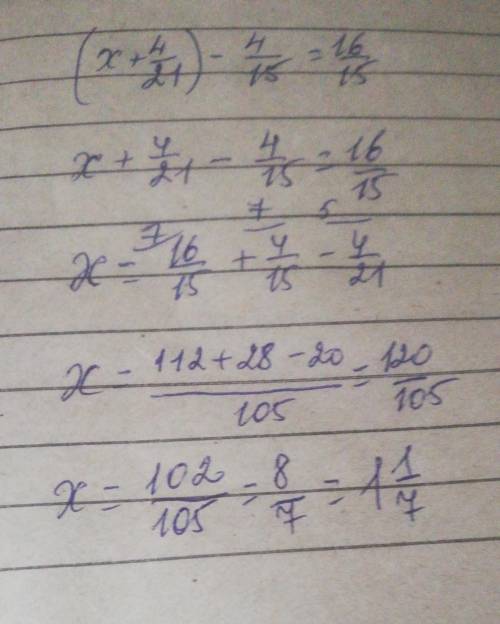 (x + 4/21) - 4/15 = 16/15
x + 4/21 - 4/15 = 16/15
7 7 5
x = 16/15 + 4/15 - 4/21
x = (112 + 28 - 20)/105 = 120/105
x = 102/105 = 8/7 = 1 1/7